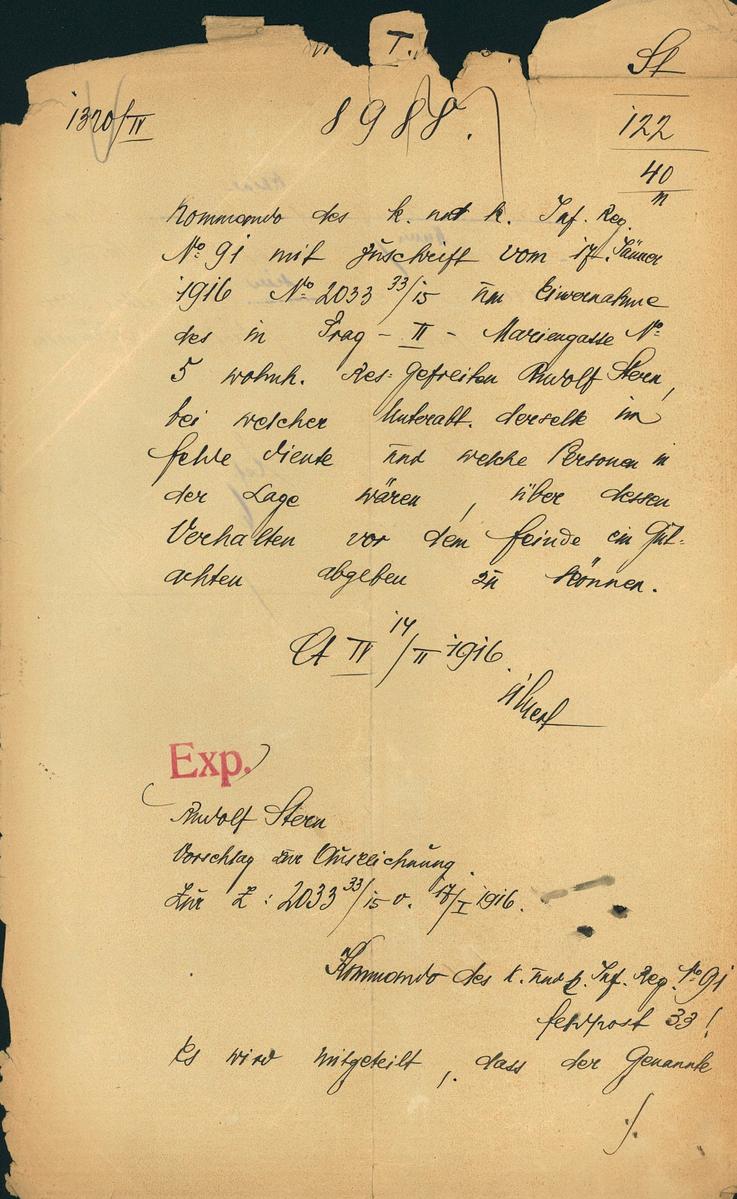 T.
St
1320/IV
8988.
122
40
m
Kommando des k. und k. Inf. Reg.
No 91 mit Zuschrift vom 17. Jänner
1916 No 2033 33/15 um Einvernahme
des in Prag - II - Mariengasse No
5 wohnh. Res. Gefreiten Rudolf Stern,
bei welcher Unterabt. derselbe im
Felde diente und welche Personen in
der Lage wären, über dessen
Verhalten vor dem Feinde ein Gut-
achten abgeben zu können.
IV 14/II 1916.
Exp.
Rudolf Stern
Vorschlag zur Auszeichnung.
Zur Z: 2033 33/15 v. 17/I 1916.
Kommando des k. und k. Inf. Reg. No 91
Feldpost 33!
Es wird mitgeteilt, dass der Genannte
./.